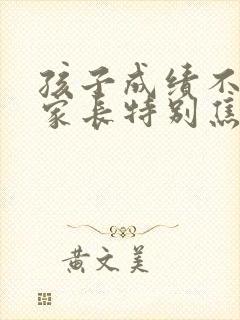 孩子成绩不
家长特别焦
黄文美